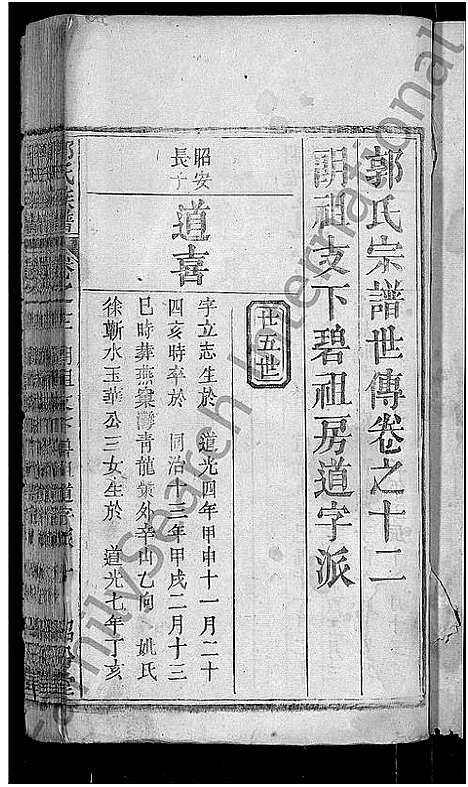 郭氏宗譜世傳卷之十二
明祖支下碧祖房道字派
廿五世
昭安
長子
道喜
字立志生於 道光四年甲申十一月二十
四亥時卒於 同治十三年甲戌二月十三
巳時葬燕窠灣青龍嘴外辛山乙向 姚氏
徐蘄水玉華公三女生於 道光七年丁亥
FamilySearch International